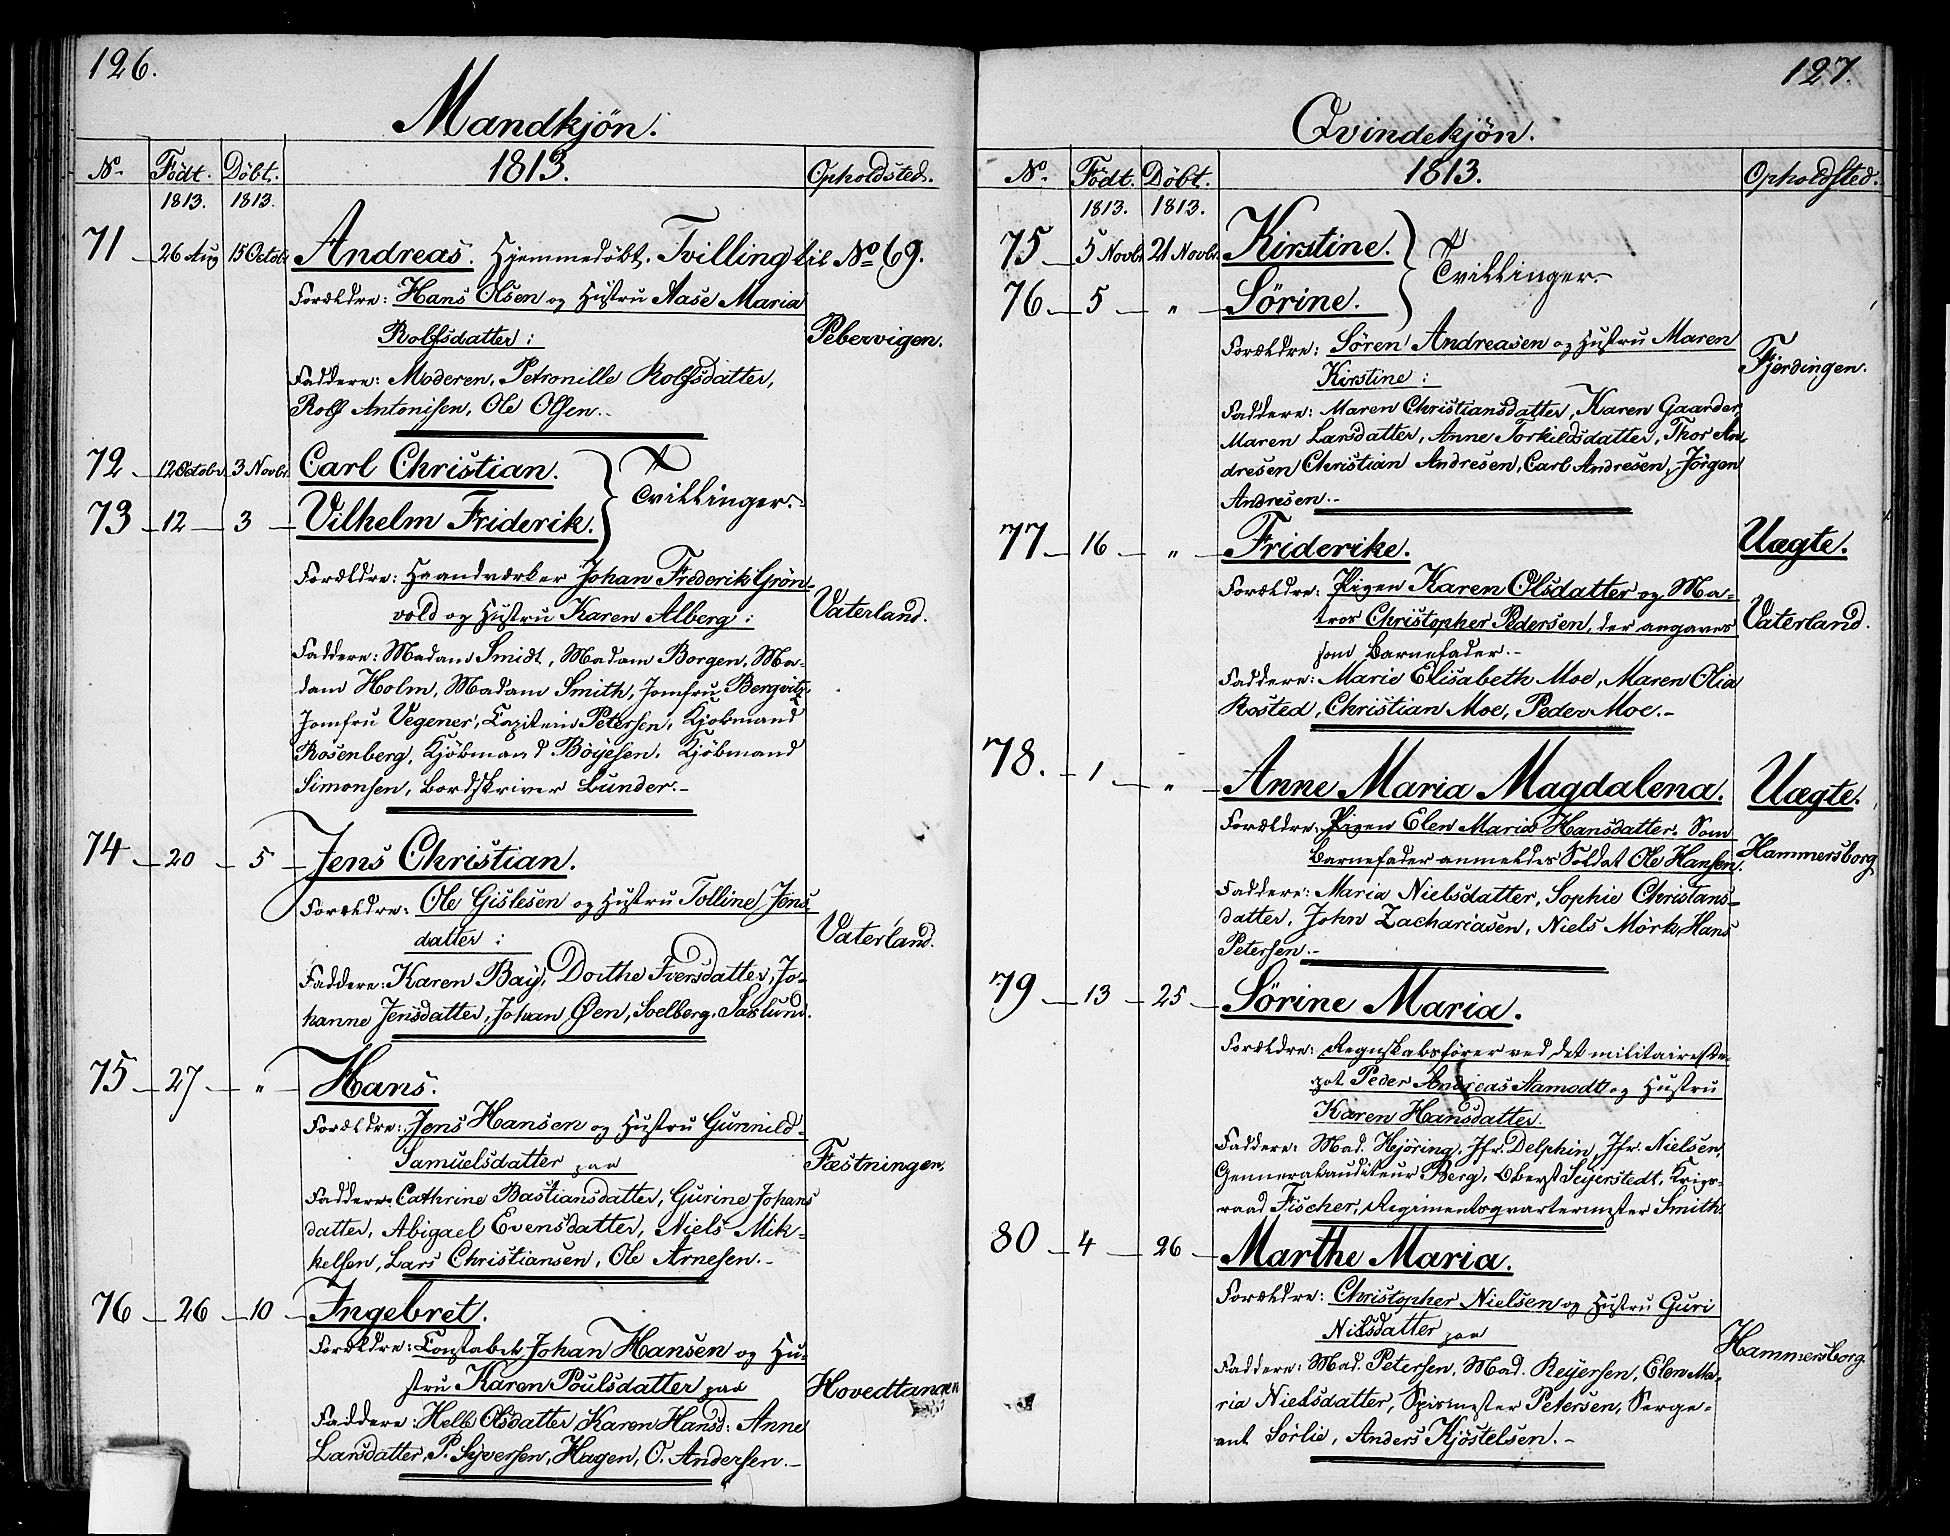 126.
Mandkjön.
No. Födt. Döbt. 1813. Opholdsted.
1813. 1813.
71 26 Aug 15 Octobr Andreas. Hjemmedöbt. Tvilling til No 69.
Forældre: Hans Olsen og Hustru Aase Maria
Rolfsdatter: Pebervigen.
Faddere: Moderen, Petronille Rolfsdatter,
Rolf Antonisen, Ole Olsen.
72 12 Octobr 3 Novbr Carl Christian. Tvillinger.
73 12 3 Vilhelm Friderik.
Forældre: Haandværker Johan Frederik Grön-
vold og Hustru Karen Alberg: Vaterland.
Faddere: Madam Smidt, Madam Borgen, Ma-
dam Holm, Madam Smith, Jomfru Bergvitz,
Jomfru Vegener, Capitein Petersen, Kjöbmand
Rosenberg, Kjöbmand Böyesen, Kjöbmand
Simonsen, Bordskriver Bunder.
74 20 5 Jens Christian.
Forældre: Ole Gislesen og Hustru Tolline Jens-
datter: Vaterland.
Faddere: Karen Bay, Dorthe Iversdatter, Jo-
hanne Jensdatter, Johan Øen, Soelberg, Saxlund.
75 27 " Hans.
Forældre: Jens Hansen og Hustru Gunnild-
Samuelsdatter paa Fæstningen.
Faddere: Cathrine Bastiansdatter, Gurine Johans
datter, Abigael Evensdatter, Niels Mik-
kelsen, Lars Christiansen, Ole Arnesen.
76 26 10 Ingebret.
Forældre: Constabel Johan Hansen og Hu-
stru Karen Poulsdatter paa Hovedtangen
Faddere: Helle Olsdatter, Karen Hansd: Anne
Larsdatter, P. Syversen, Hagen, O. Andersen.
127.
Qvindekjön.
No. Födt. Döbt. 1813. Opholdsted.
1813. 1813.
75 5 Novbr. 21 Novbr. Kirstine. Tvillinger.
76 5 " Sörine.
Forældre: Sören Andreasen og Hustru Maren
Kirstine: Fjerdingen.
Faddere: Maren Christiansdatter, Karen Gaarder,
Maren Larsdatter, Anne Torkildsdatter, Thor An-
dresen Christian Andresen, Carl Andresen, Jörgen
Andresen.
77 16 " Friderike. Uægte.
Forældre: Pigen Karen Olsdatter og Ma-
tros Christopher Pedersen, der angaves Vaterland.
som Barnefader.
Faddere: Marie Elisabeth Moe, Maren Olia
Rosted, Christian Moe, Peder Moe.
78. 1 " Anne Maria Magdalena. Uægte.
Forældre: Pigen Elen Maria Hansdatter. Som
Barnefader anmeldes Soldat Ole Hansen. Hammersborg
Faddere: Maria Nielsdatter, Sophie Christans-
datter, John Zachariasen, Niels Mörk, Hans
Petersen.
79 13 25 Sörine Maria.
Forældre: Regnskabsförer ved det militaire de-
pot Peder Andreas Aamodt og Hustru
Karen Hansdatter.
Faddere: Mad. Hjöring, Jfr. Delphin, Jfr. Nielsen,
Genneralauditeur Berg, Oberst Seyerstedt, Krigs-
raad Fischer, Regimentsqvartermester Smith.
80 4 26 Marthe Maria.
Forældre: Christopher Nielsen og Hustru Guri
Nilsdatter paa Hammersborg.
Faddere: Mad. Petersen, Mad. Reyersen, Elen Ma-
ria Nielsdatter, Petersen, Serge-
ant Sörlie, Anders Kjöstelsen.